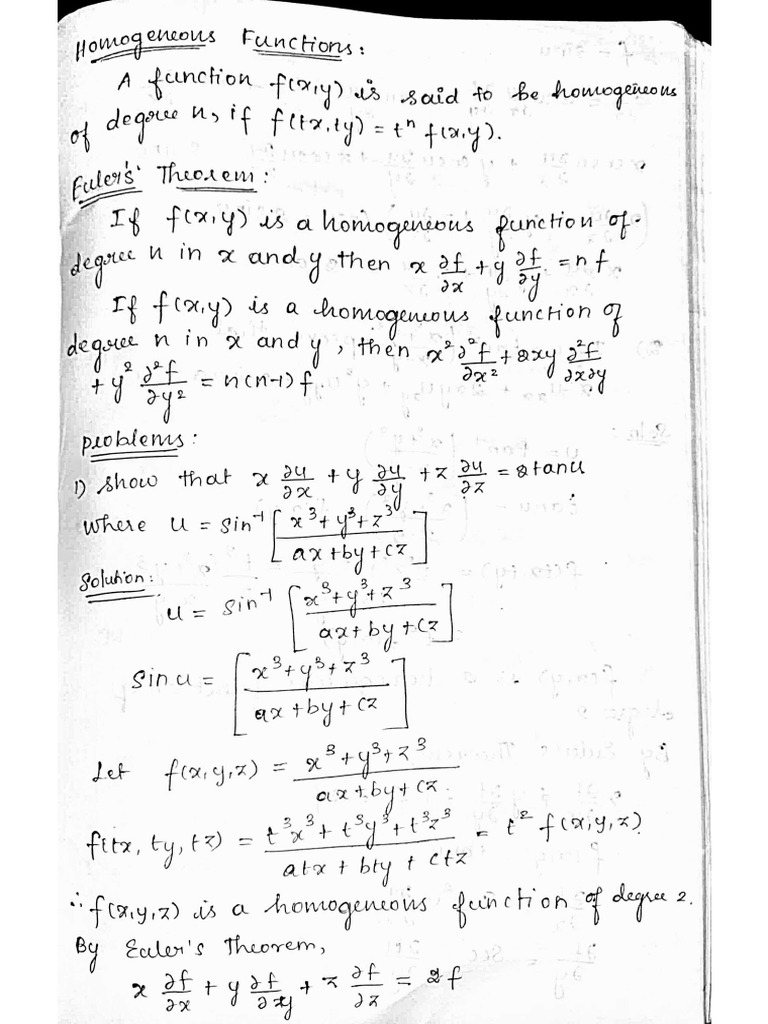 Homogeneous Functions:
A function f(x,y) is said to be homogeneous
of degree n, if f(tx,ty) = tⁿ f(x,y).
Euler's Theorem:
If f(x,y) is a homogeneous function of
degree n in x and y then x ∂f/∂x + y ∂f/∂y = n f
If f(x,y) is a homogeneous function of
degree n in x and y, then x² ∂²f/∂x² + 2xy ∂²f/∂x∂y
+ y² ∂²f/∂y² = n(n-1) f.
problems:
1) show that x ∂u/∂x + y ∂u/∂y + z ∂u/∂z = 2 tan u
where u = sin⁻¹ [x³+y³+z³ / ax+by+cz].
Solution:
u = sin⁻¹ [x³+y³+z³ / ax+by+cz]
Sin u = [x³+y³+z³ / ax+by+cz]
Let f(x,y,z) = x³+y³+z³ / ax+by+cz.
f(tx, ty, tz) = t³x³ + t³y³ + t³z³ / atx + bty + ctz = t² f(x,y,z)
∴ f(x,y,z) is a homogeneous function of degree 2.
By Euler's Theorem,
x ∂f/∂x + y ∂f/∂y + z ∂f/∂z = 2f